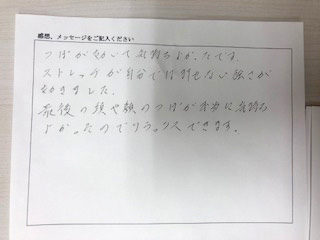 感想、メッセージをご記入ください
つぼが効いて気持ちよかったです。
ストレッチが自分では出せない強さが
効きました。
最後の頭や顔のつぼが本当に気持ち
よかったのでリラックスできます。